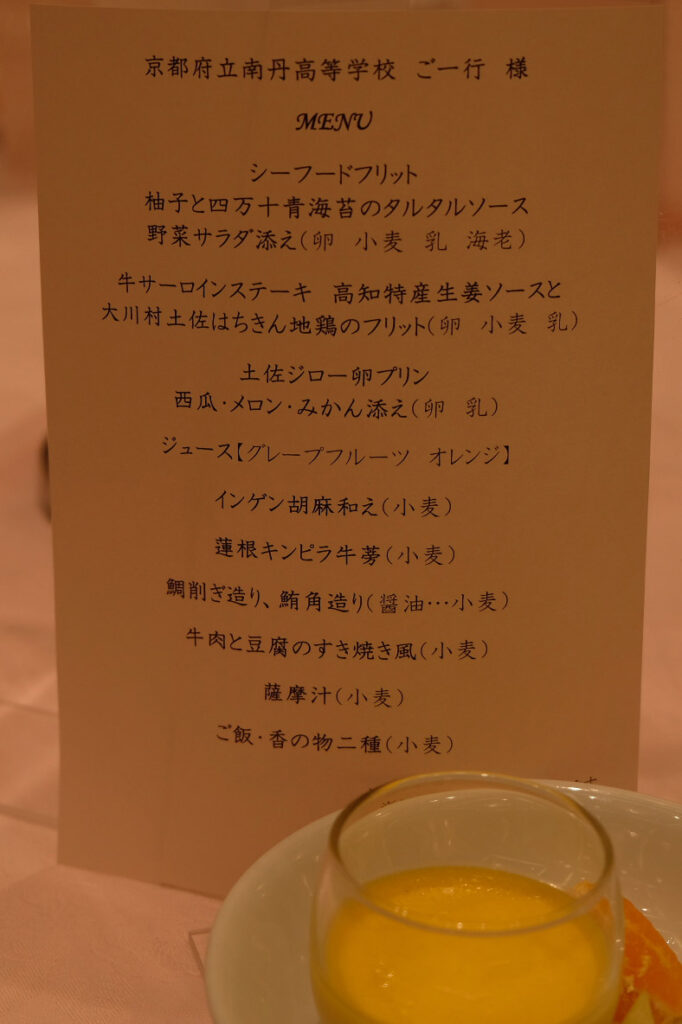 京都府立南丹高等学校　ご一行　様
MENU
シーフードフリット
柚子と四万十青海苔のタルタルソース
野菜サラダ添え(卵　小麦　乳　海老)
牛サーロインステーキ　高知特産生姜ソースと
大川村土佐はちきん地鶏のフリット(卵　小麦　乳)
土佐ジロー卵プリン
西瓜・メロン・みかん添え(卵　乳)
ジュース【グレープフルーツ　オレンジ】
インゲン胡麻和え(小麦)
蓮根キンピラ牛蒡(小麦)
鯛削ぎ造り、鮪角造り(醤油…小麦)
牛肉と豆腐のすき焼き風(小麦)
薩摩汁(小麦)
ご飯・香の物二種(小麦)